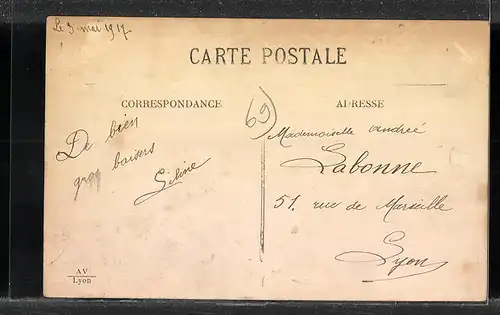 Le 3 mai 1917.
CARTE POSTALE
CORRESPONDANCE
ADRESSE
69
De bien
gros baisers
Mademoiselle Andrée
Labonne
51. rue de Marseille
Lyon
AV
Lyon